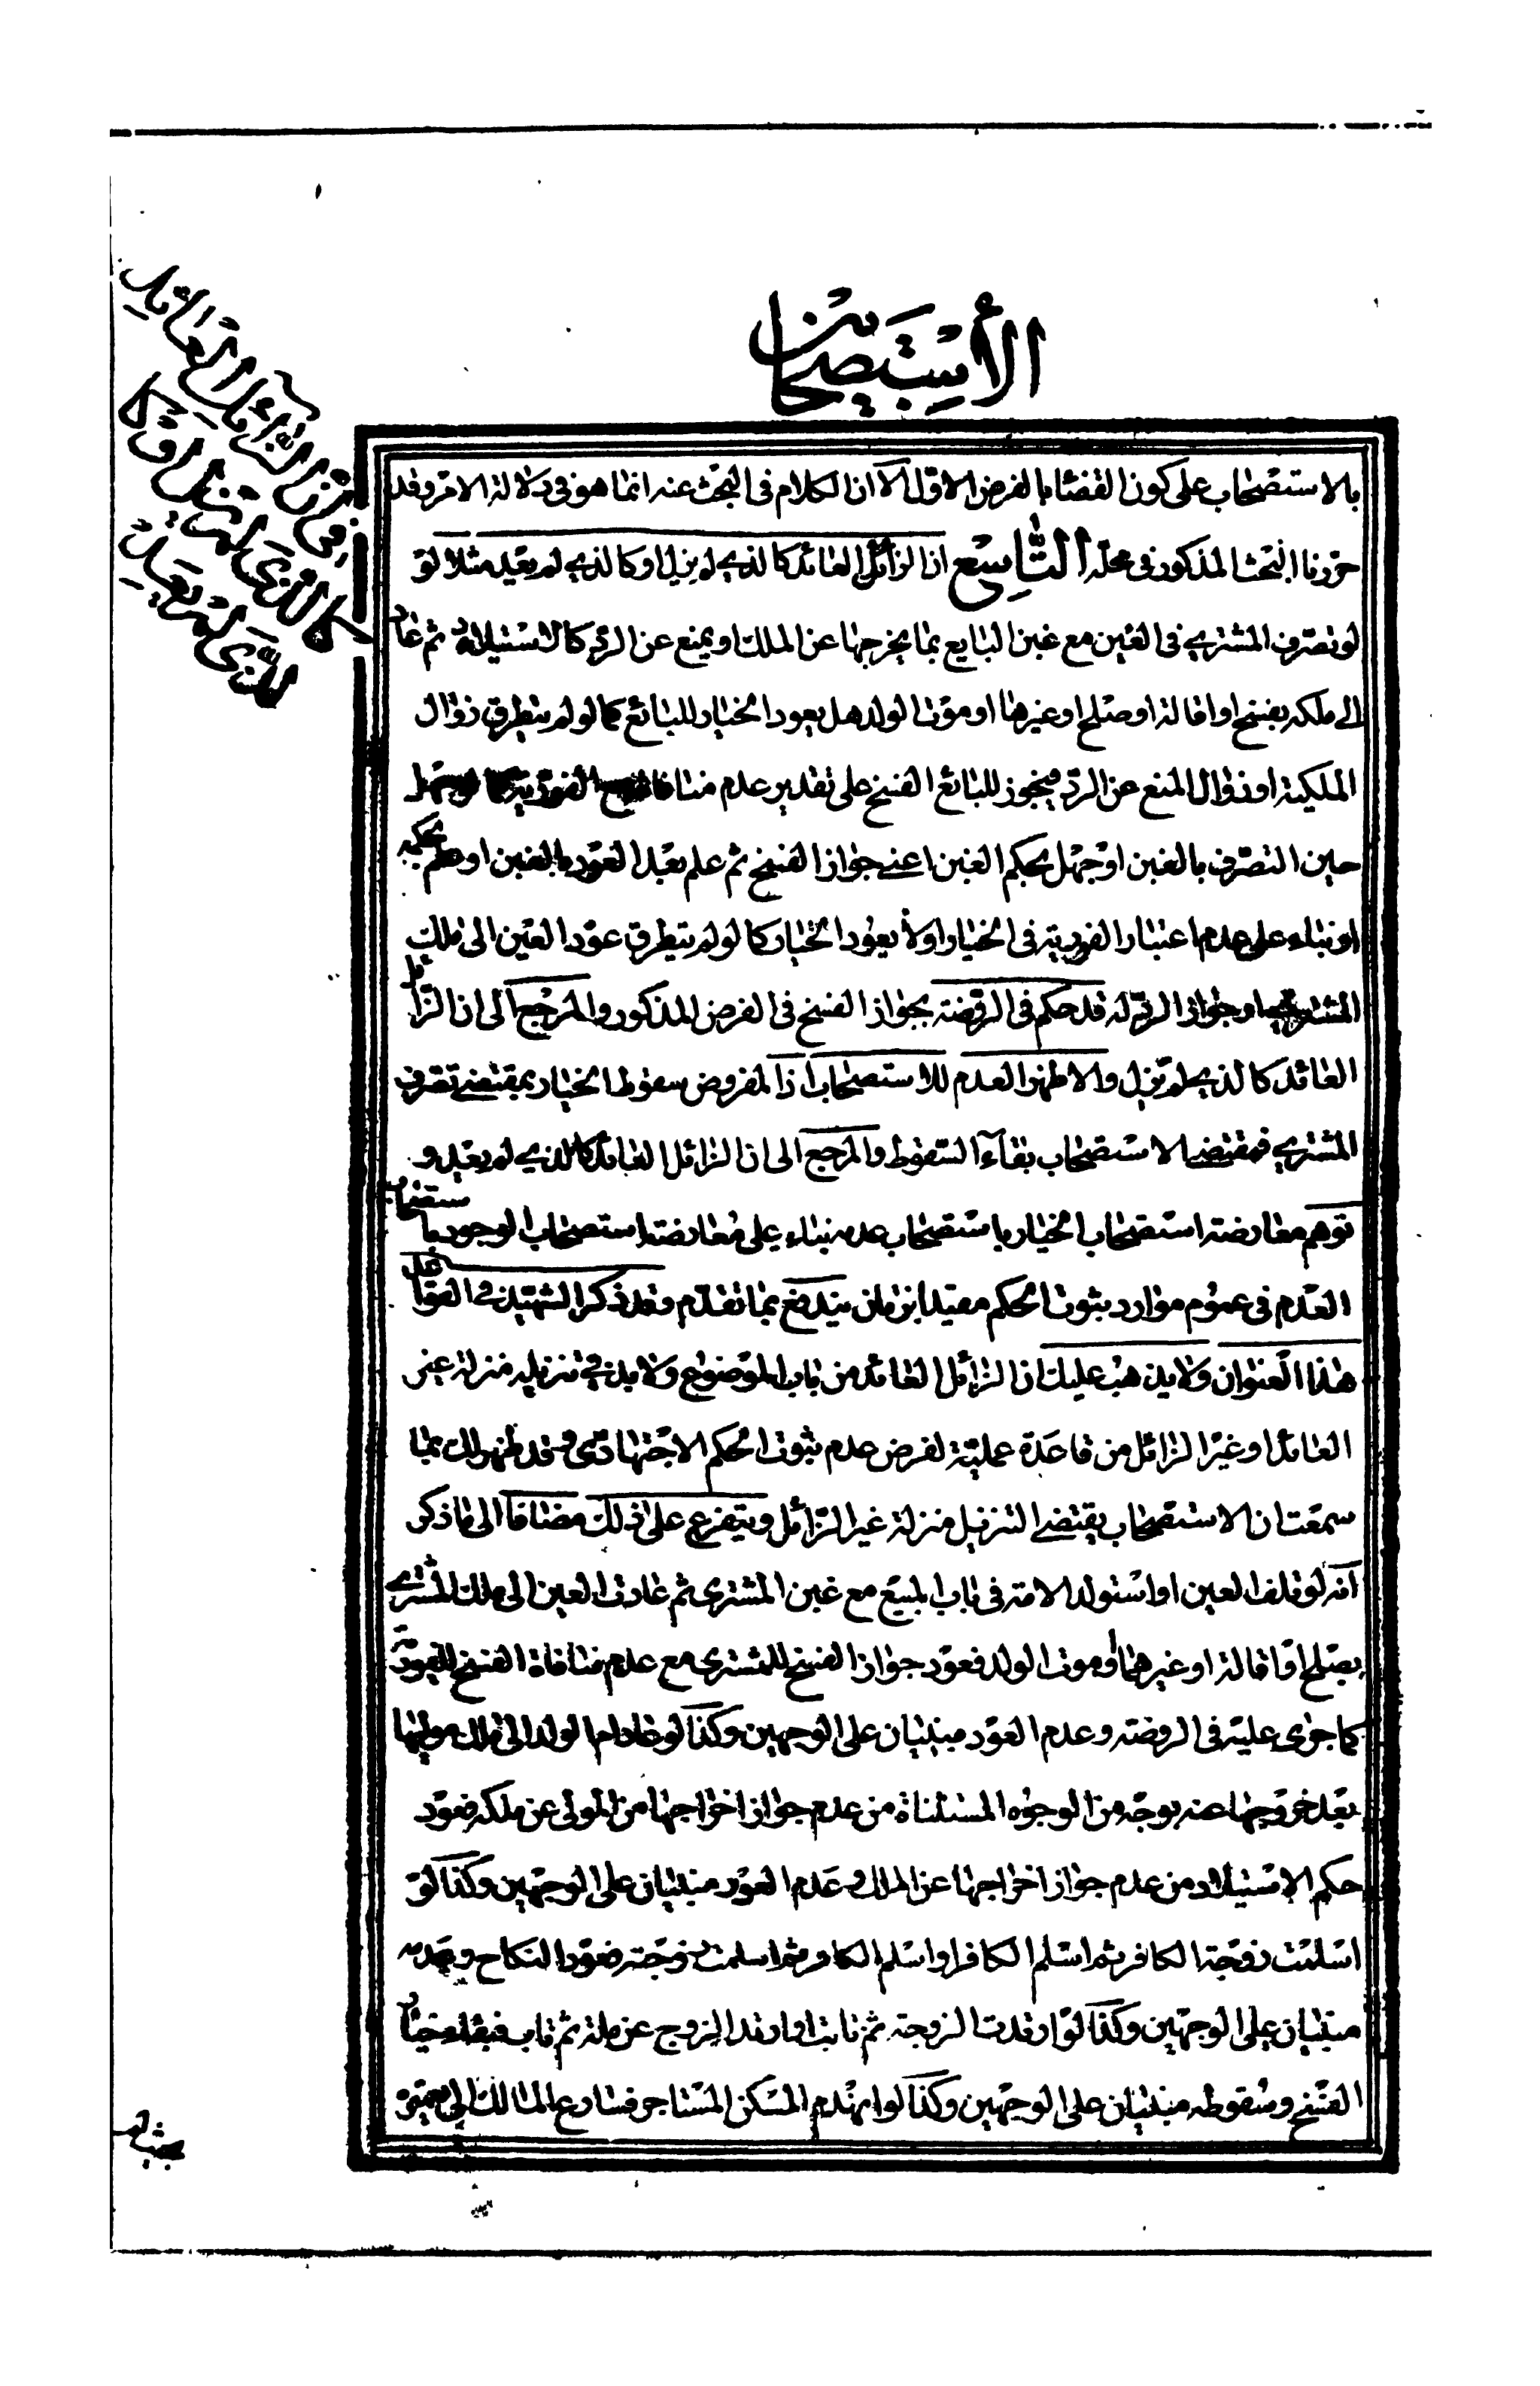 الأستصحاب
في ان الزائل العائد
كالذي لم يزل او كا
لذي لم يعد
بالاستصحاب على كون القضاء بالفرض الاول الا ان الكلام فى البحث عنه انما هو فى دلالة الامر وقد
حررنا البحث المذكور فى محله التاسع ان الزائل العائد كالذي لم يزل او كالذي لم يعد مثلا لو
لو تصرف المشترى فى العين مع غبن البايع بما يخرجها عن الملك او يمنع عن الرد كالاستيلاد ثم عاد
الى ملكه بفسخ او اقالة او صلح او غيرها او موت الولد هل يعود الخيار للبائع كما لو لم يتطرق زوال
الملكية او زوال المنع عن الرد فيجوز للبائع الفسخ على تقدير عدم منافاة الفورية لو جهل
حين التصرف بالغبن او جهل بحكم الغبن اعنى جواز الفسخ ثم علم بعد العود بالغبن او حكمه
او بناء على عدم اعتبار الفورية فى الخيار او لا يعود الخيار كما لو لم يتطرق عود العين الى ملك
المشترى او جواز الرد له قد حكم فى الروضة بجواز الفسخ فى الفرض المذكور والمرجع الى ان الزائل
العائد كالذي لم يزل والاظهر العدم للاستصحاب اذ المفروض سقوط الخيار بمقتضى تصرف
المشترى فمقتضى الاستصحاب بقاء السقوط والمرجع الى ان الزائل العائد كالذي لم يعد و
توهم معارضة استصحاب الخيار باستصحاب عدمه بناء على معارضة استصحاب الوجود باستصحاب
العدم فى عموم موارد ثبوت الحكم مقيدا بزمان يندفع بما تقدم وقد ذكر الشهيد فى القواعد
هذا العنوان ولا يذهب عليك ان الزائل العائد من باب الموضوع ولا بد فى تنزيله منزلة غير
العائد او غير الزائل من قاعدة عملية لفرض عدم ثبوت الحكم الاجتهادى وقد ظهر لك بما
سمعت ان الاستصحاب يقتضى التنزيل منزلة غير الزائل ويتفرع على ذلك مضافا الى ما ذكر
انه لو تلف العين او استولد الامة فى باب المبيع مع غبن المشترى ثم عادت العين الى ملك المشترى
بصلح او اقالة او غيرهما او موت الولد فعود جواز الفسخ للمشترى مع عدم منافاة الفسخ للفورية
كما جرى عليه فى الروضة وعدم العود مبنيان على الوجهين وكذا لو عاد ام الولد الى ملك موليها
بعد خروجها عنه بوجه من الوجوه المستثناة من عدم جواز اخراجها من المولى عن ملكه فعود
حكم الاستيلاد من عدم جواز اخراجها عن الملك وعدم العود مبنيان على الوجهين وكذا لو
اسلمت زوجة الكافر ثم اسلم الكافر او اسلم الكافر ثم اسلمت زوجته فعود النكاح وعدمه
مبنيان على الوجهين وكذا لو ارتدت الزوجة ثم تابت او ارتد الزوج عن ملة ثم تاب فبقاء خيار
الفسخ وسقوطه مبنيان على الوجهين وكذا لو انهدم المسكن المستاجر فسارع المالك الى